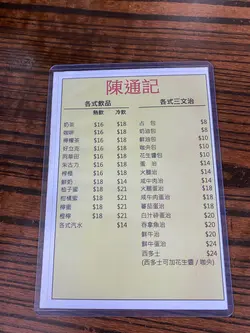 陳通記
各式飲品
熱飲 冷飲
奶茶 $16 $18
咖啡 $16 $18
檸檬茶 $16 $18
好立克 $16 $18
阿華田 $16 $18
朱古力 $16 $18
檸檬 $16 $18
鮮奶 $14 $18
柚子蜜 $18 $21
柑橘蜜 $18 $21
檸蜜 $18 $21
檸樂 $18 $21
各式汽水 $14
各式三文治
方包 $8
奶油包 $8
鮮油包 $10
咖央包 $10
花生醬包 $10
蛋治 $14
火腿治 $14
咸牛肉治 $14
火腿蛋治 $18
咸牛肉蛋治 $18
蕃茄蛋治 $18
白汁碎蛋治 $20
吞拿魚治 $20
鮮牛治 $20
鮮牛蛋治 $24
西多士 $24
(西多士可加花生醬 / 咖央)